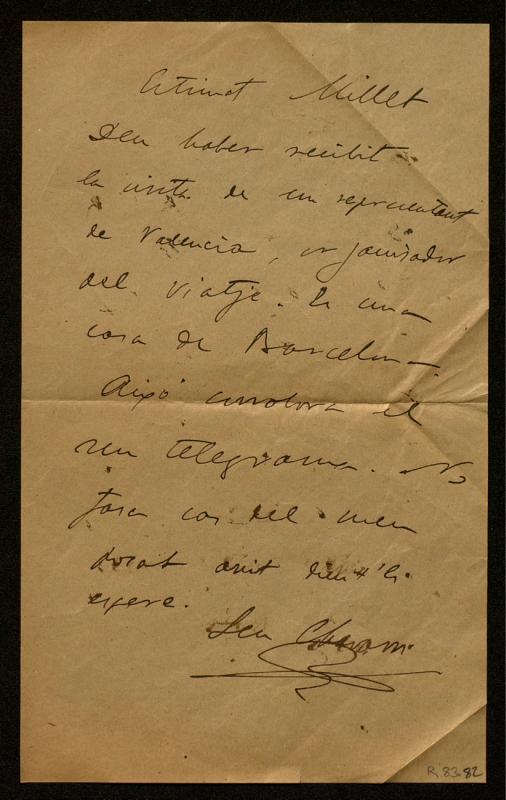 Estimat Millet
Deu haber recibit
la visita de un representant
de Valencia, organisador
del viatje. Es una
cosa de Barcelona.
Aixó corrobora el
seu telegrama. No
fasa cas del meu
dient-li
espere.
Seu
R. 83.82